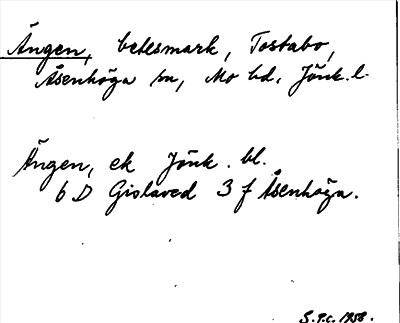 Ängen, betesmark, Tostabo,
Åsenhöga sn, Mo hd, Jönk. l.
Ängen, ek Jönk. bl.
6 D Gislaved 3 f Åsenhöga.
S.F.C. 1958.